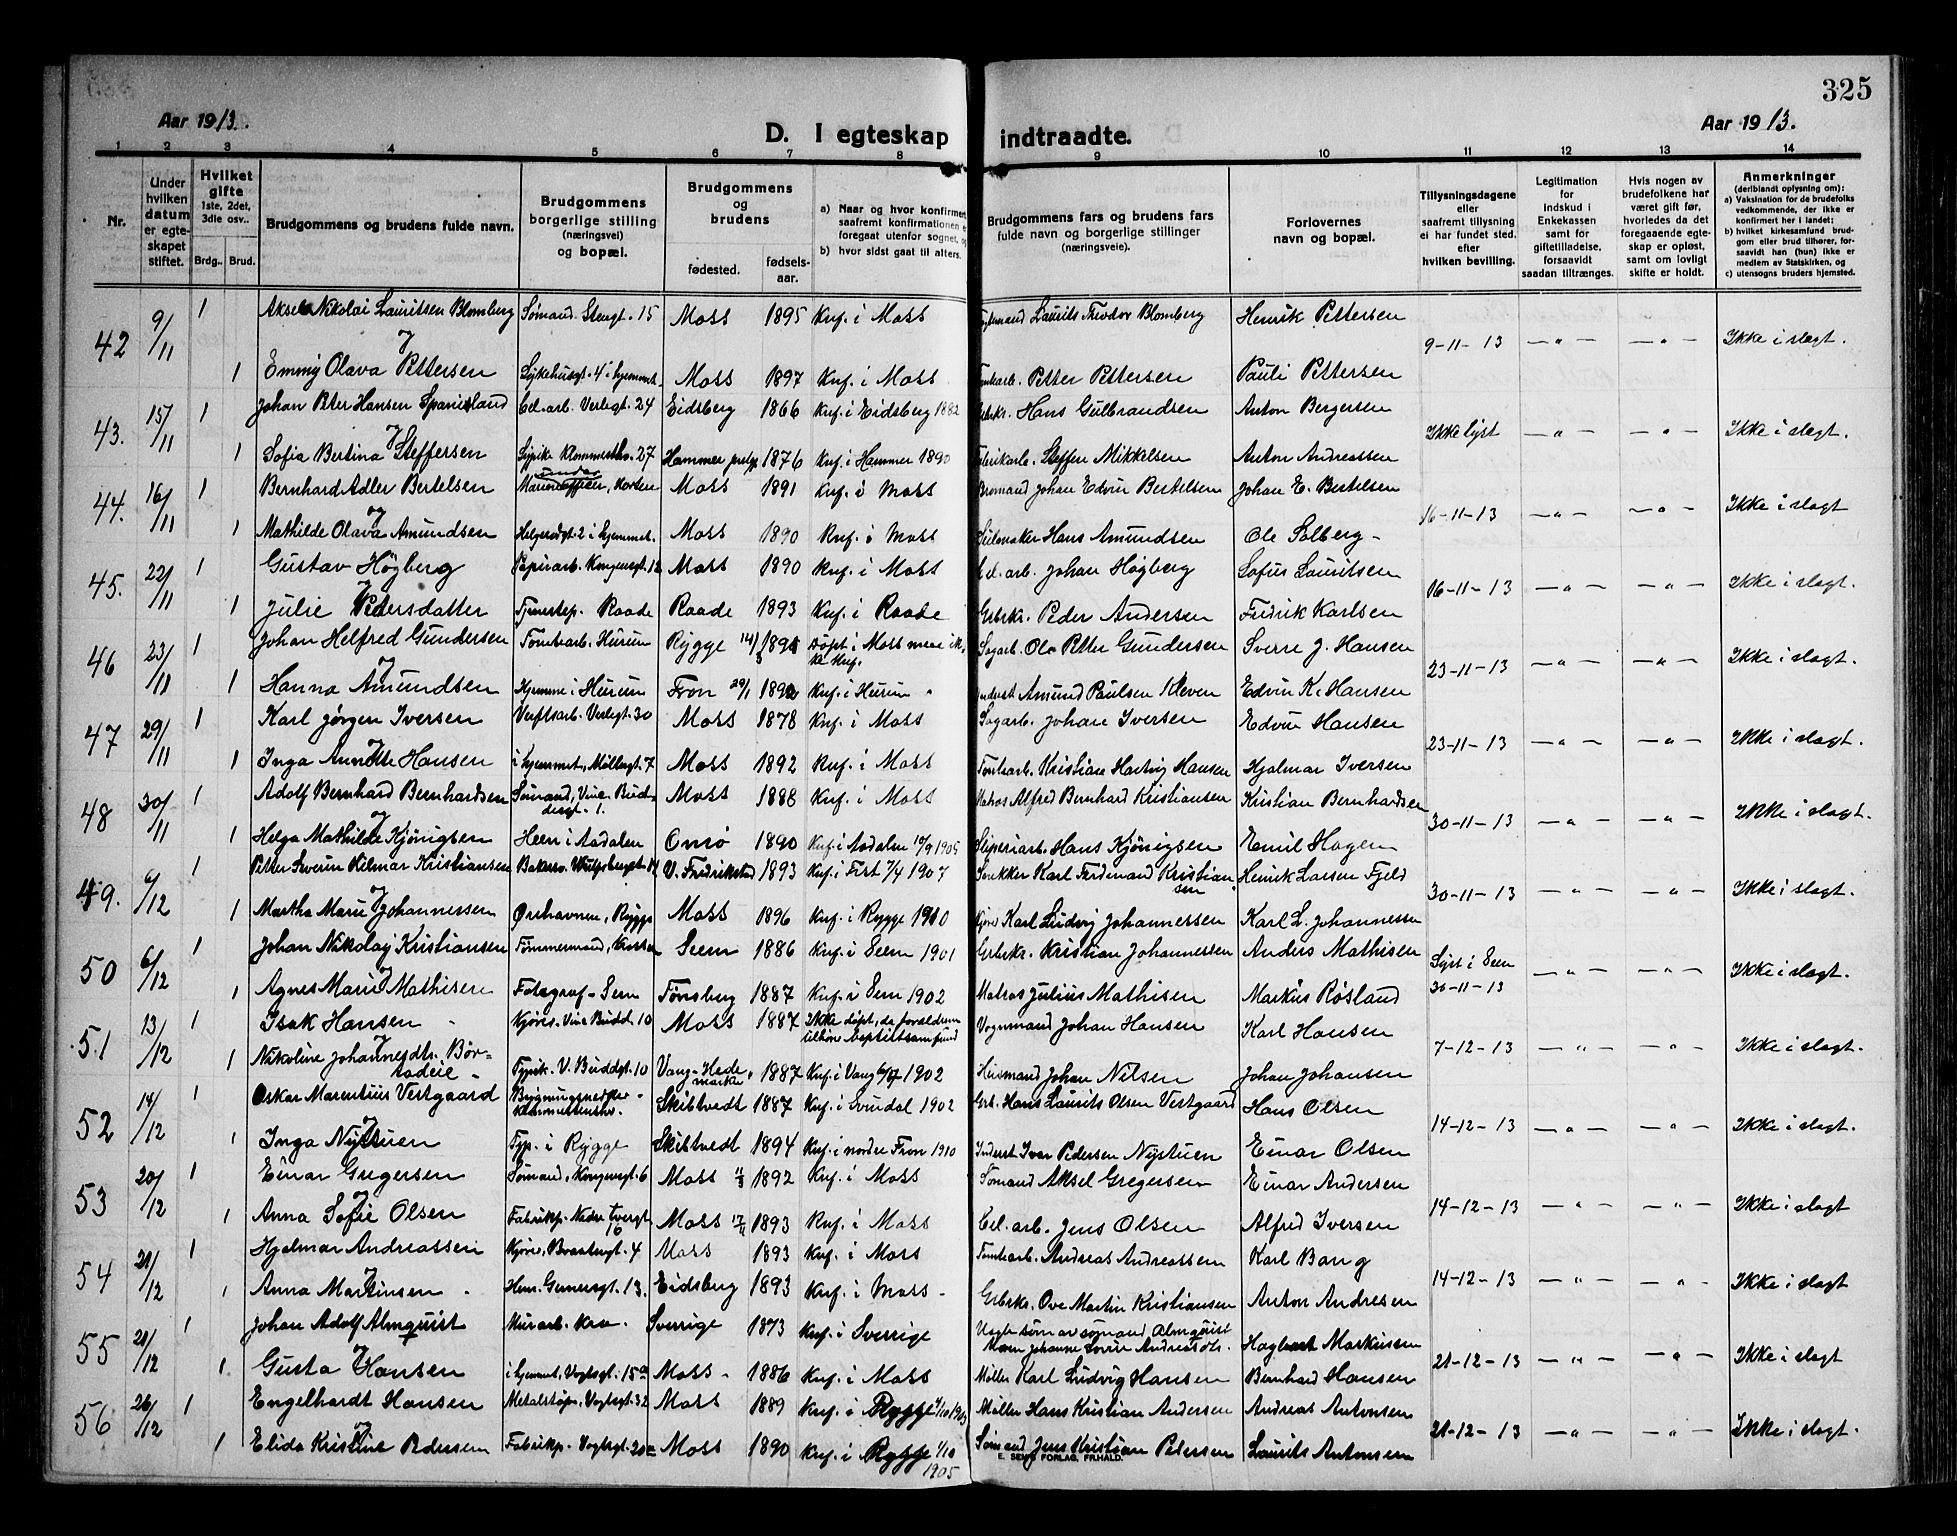 325
Aar 1913.
D. I egteskap indtraadte.
Aar 1913.
1 2 3 4 5 6 7 8 9 10 11 12 13 14
Nr.
Under hvilken datum er egteskapet stiftet.
Hvilket gifte 1ste, 2det, 3die osv..
Brdg.. Brud.
Brudgommens og brudens fulde navn.
Brudgommens borgerlige stilling (næringsvei) og bopæl.
Brudgommens og brudens
fødested. fødselsaar.
a) Naar og hvor konfirmert, saafremt konfirmationen er foregaat utenfor sognet, og
b) hvor sidst gaat til alters.
Brudgommens fars og brudens fars fulde navn og borgerlige stillinger (næringsveie).
Forlovernes navn og bopæl.
Tillysningsdagene eller saafremt tillysning ei har fundet sted, efter hvilken bevilling.
Legitimation for indskud i Enkekassen samt for giftetilladelse, forsaavidt saadan tiltrænges.
Hvis nogen av brudefolkene har været gift før, hvorledes da det foregaaende egteskap er opløst, samt om lovlig skifte er holdt.
Anmerkninger (deriblandt oplysning om):
a) Vaksination for de brudefolks vedkommende, der ikke er konfirmert her i landet;
b) hvilket kirkesamfund brudgom eller brud tilhører, forsaavidt han (hun) ikke er medlem av Statskirken, og
c) utensogns bruders hjemsted.
42 9/11 1 Aksel Nikolai Lauritsen Blomberg Sømand, Stengt. 15 Moss 1895 Knf. i Moss Laurits Theodor Blomberg Henrik Pettersen 9-11-13 — „ — — „ — Ikke i slegt.
1 Emmy Olava Pettersen Sykehusgt. 4 i hjemmet. Moss 1897 Knf. i Moss Petter Pettersen Pauli Pettersen
43. 15/11 1 Johan Peter Hansen Spanieland Cel. arb. Verlegt. 24 Eidsberg 1866 Knf. i Eidsberg 1882 Grbrkr. Hans Gulbrandsen Anton Bergersen Ikke lyst — „ — — „ — Ikke i slegt.
1 Sofia Bertina Steffersen 27 Hammer 1876 Knf. i Hammer 1890 Fabrikarb. Steffen Mikkelsen Anton Andreassen
44. 16/11 1 Bernhard Adler Bertelsen Horten Moss 1891 Knf. i Moss Johan Edvin Bertelsen Johan E. Bertelsen 16-11-13 — „ — — „ — Ikke i slegt
1 Mathilde Olava Amundsen Helgerødgt. 2 i hjemmet. Moss 1890 Knf. i Moss Seilmaker Hans Amundsen Ole Solberg -
45. 22/11 1 Gustav Högberg Papirarb. Kongensgt. 12 Moss 1890 Knf. i Moss Cel. arb. Johan Högberg Sofus Lauritsen 16-11-13 — „ — — „ — Ikke i slegt.
1 Julie Pedersdatter Tjenestep. Raade Raade 1893 Knf. i Raade Grbrkr. Peder Andersen Fredrik Karlsen
46 23/11 1 Johan Helfred Gundersen Tomtearb. Hurum Rygge 189 Døpt i Moss men ikke knf. Sagarb. Ole Petter Gundersen Sverre J. Hansen 23-11-13 — „ — — „ — Ikke i slegt
1 Hanna Amundsen Hjemme i Hurum Fron 29/1 189 Knf. i Hurum Inderst Amund Paulsen Kleven Edvin K. Hansen
47 29/11 1 Karl Jørgen Iversen Verftsarb. Verlegt. 30 Moss 1878 Knf. i Moss Sagarb. Johan Iversen Edvin Hansen 23-11-13 — „ — — „ — Ikke i slegt.
1 Inga Annette Hansen i hjemmet, Møllergt. 7 Moss 1892 Knf. i Moss Tomtearb. Kristian Hartvig Hansen Hjalmar Iversen
48 30/11 1 Adolf Bernhard Bernhardsen Sømand, Vinc. Buddesgt. 1. Moss 1888 Knf. i Moss Matros Alfred Bernhard Kristiansen Kristian Bernhardsen 30-11-13 — „ — — „ — Ikke i slegt.
1 Helga Mathilde Kjønigsen Heen i Aadalen Onsø 1890 Knf. i Aadalen 10/9 1905 Sliperiarb. Hans Kjønigsen Emil Hagen
49. 6/12 1 Petter Severin Hilmar Kristiansen V. Fredrikstad 1893 Knf. i Frst 7/4 1907 Karl Ferdinand Kristiansen Henrik Larsen Fjeld 30-11-13 — „ — — „ — Ikke i slegt.
1 Martha Marie Johannessen Ørehavnen, Rygge Moss 1896 Knf. i Rygge 1910 Kjøre Karl Ludvig Johannessen Karl L. Johannessen
50 6/12 1 Johan Nikolaj Kristiansen Tømmermand, Seem 1886 Knf. i Seem 1901 Grbrkr. Kristian Johannessen Anders Mathisen Lyst i Seem 30-11-13 — „ — — „ — Ikke i slegt.
1 Agnes Marie Mathisen Fotograf - Sem Tønsberg 1887 Knf. i Sem 1902 Matros Julius Mathisen Markus Røsland
51 13/12 1 Isak Hansen Kjøres. Vinc. Budd. 10 Moss 1887 Ikke døpt, da forældrene tilhøre baptistsamfund Vognmand Johan Hansen Karl Hansen 7-12-13 — „ — — „ — Ikke i slegt.
1 Nikoline Johannesdtr. Børstadeie - V. Buddgt. 10 Vang - Hedemarke 1887 Knf. i Vang 1902 Johan Nilsen Johan Johansen
52 14/12 1 Oskar Marentius Vestgaard Skibtvedt 1887 Knf. i Svindal 1902 Grb. Hans Laurits Olsen Vestgaard Hans Olsen 14-12-13 — „ — — „ — Ikke i slegt.
1 Inga Nystuen Typ. i Rygge Skibtvedt 1894 Knf. i nordre Fron 1910 Inderst Ivar Pedersen Nystuen Einar Olsen
53 20/12 1 Einar Gregersen Sømand, Kongensgt. 6 Moss 1892 Knf. i Moss Sømand Aksel Gregersen Einar Andersen 14-12-13 — „ — — „ — Ikke i slegt
1 Anna Sofie Olsen Fabrikp. Nedre Tvergt 16 Moss 1893 Knf. i Moss Cel. arb. Jens Olsen Alfred Iversen
54 21/12 1 Hjalmar Andreassen Kjøre, Braatengt. 4 Moss 1893 Knf. i Moss Tomtearb. Andreas Andreassen Karl Bang 14-12-13 — „ — — „ — Ikke i slegt
1 Anna Martinsen Hen. Gernersgt. 13. Eidsberg 1893 Knf. i Moss - Grbrkr. Ove Martin Kristiansen Anton Andresen
55 21/12 1 Johan Adolf Almquist Murarb. Kra - Sverrige 1873 Knf. i Sverrige Uegte søn av sømand Almquist Johanne Lovise Andreasdtr. Hagbart Markussen 21-12-13 — „ — — „ — Ikke i slegt
1 Gusta Hansen i hjemmet, Vogtsgt. 15 Moss - 1886 Knf. i Moss Møller Karl Ludvig Hansen Bernhard Hansen
56 26/12 1 Engelhardt Hansen Metalstøper, Vogtsgt. 32 Moss 1889 Knf. i Rygge 1/10 1903 Møller Hans Kristian Andersen Andreas Antonsen 21-12-13 — „ — — „ — Ikke i slegt.
1 Elida Kristine Pedersen Fabrikp. Vogtsgt. 20 Moss 1890 Knf. i Rygge 1/10 1905 Sømand Jens Kristian Petersen Laurits Antonsen
E. SEMS FORLAG, FR.HALD.